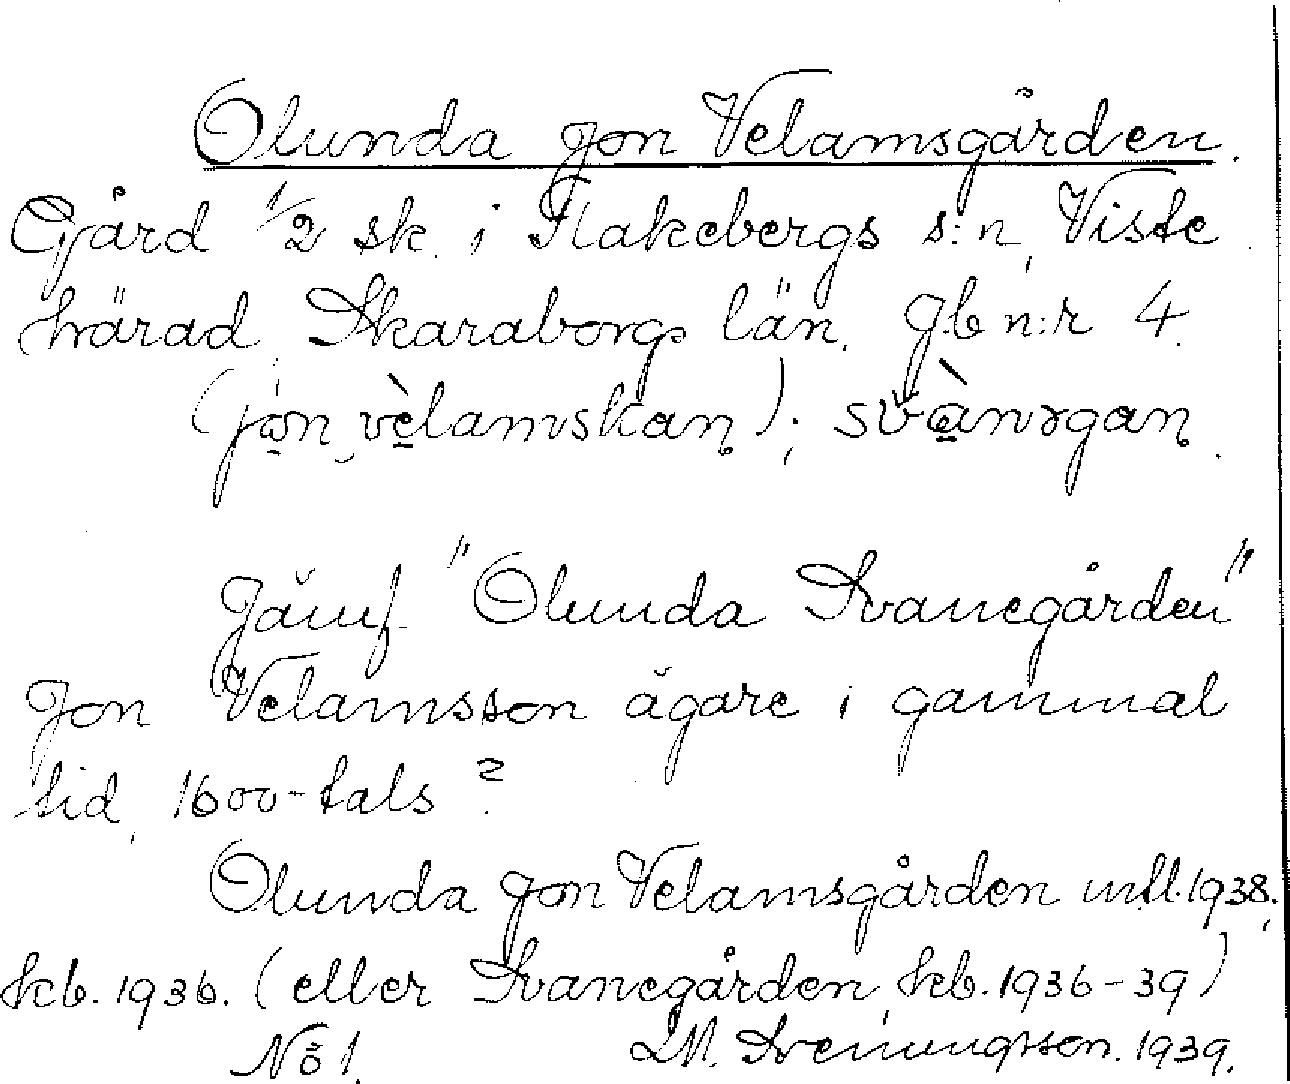 Olunda Jon Velamsgården.
Gård 1/2 sk. i Flakebergs s:n, Viste
härad, Skaraborgs län. Jb n:r 4.
(jo̤n vè̠lamskan̥); svà̠nɤgan̥.
Jämf. "Olunda Svanegården"
Jon Velamsson ägare i gammal
tid, 1600-tals?
Olunda Jon Velamsgården mtl. 1938,
kb. 1936. (eller Svanegården, kb. 1936-39)
No 1. L.M. Svenungsson. 1939.